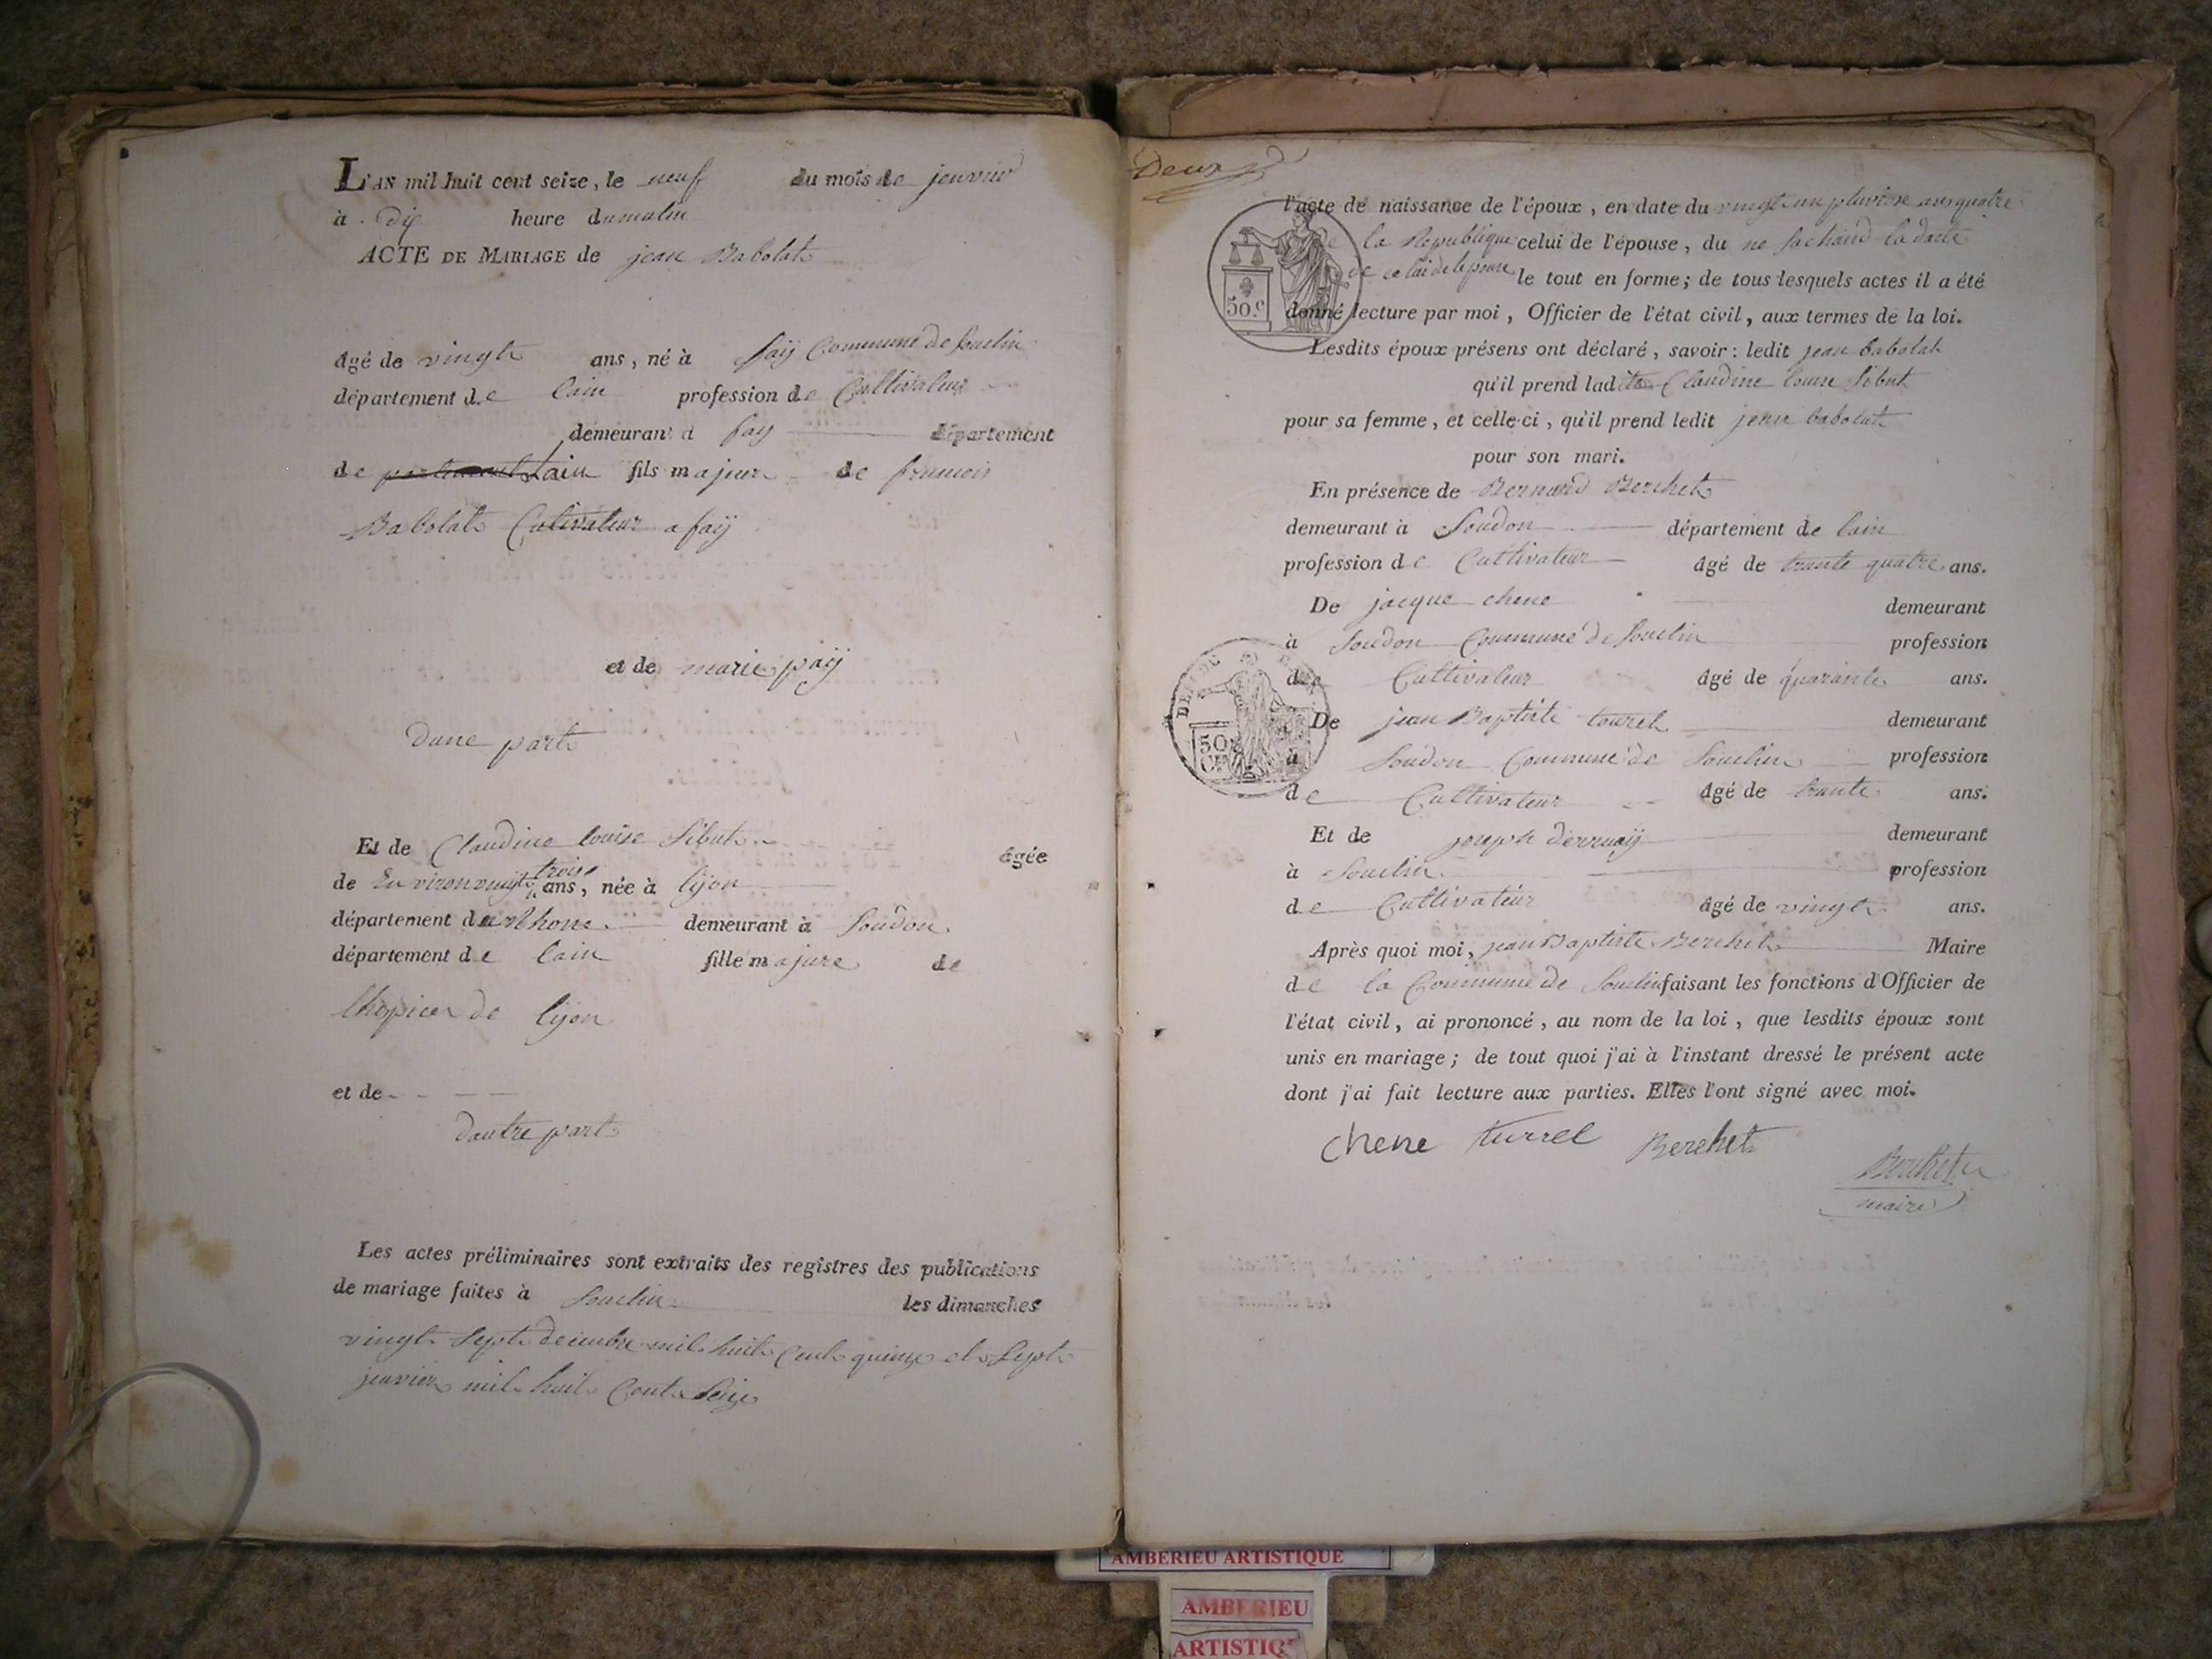 L'AN mil huit cent seize, le neuf du mois de jenvier
à Dix heure du matin
ACTE DE MARIAGE de jean Babolat
âgé de vingt ans, né à faÿ Commune de Souclin
département de lain profession de Cultivateur
demeurant à fay département
de Lain fils majeur de francois
Babolat Cultivateur a faÿ
et de marie paÿ
dune part
Et de Claudine louise Sibut âgée
de Environ vingt trois ans, née à lÿon
département du Rhone demeurant à Soudon
département de lain fille majure de
lhospice de lÿon
et de - - — —
dautre part
Les actes préliminaires sont extraits des registres des publications
de mariage faites à Souclin les dimanches
vingt Sept decembre mil huit Cent quinze et Sept
jenvier mil huit Cent Seize
Deux
l'acte de naissance de l'époux, en date du vingt un pluviose ans quatre
de la Republique celui de l'épouse, du ne sachand la date
de celui de lepouse le tout en forme; de tous lesquels actes il a été
50.c donné lecture par moi, Officier de l'état civil, aux termes de la loi.
Lesdits époux présens ont déclaré, savoir: ledit jean babolat
qu'il prend ladite Claudine louise Sibut
pour sa femme, et celle-ci, qu'il prend ledit jean babolat
pour son mari.
En présence de Bernard Berchet
demeurant à Soudon département de lain
profession de Cultivateur âgé de trante quatre ans.
De jacque chene demeurant
à Soudon Commune de Souclin profession
de Cultivateur âgé de quarante ans.
De jean Baptiste tourel demeurant
50 à Soudon Commune de Souclin profession
de Cultivateur âgé de trante ans.
Et de joseph derruaÿ demeurant
à Souclin profession
de Cultivateur âgé de vingt ans.
Après quoi moi, jean Baptiste Berchet Maire
de la Commune de Souclin faisant les fonctions d'Officier de
l'état civil, ai prononcé, au nom de la loi, que lesdits époux sont
unis en mariage; de tout quoi j'ai à l'instant dressé le présent acte
dont j'ai fait lecture aux parties. Elles l'ont signé avec moi.
chene turrel Berchet
Berchet
maire
AMBERIEU ARTISTIQUE
AMBERIEU
ARTISTIQ